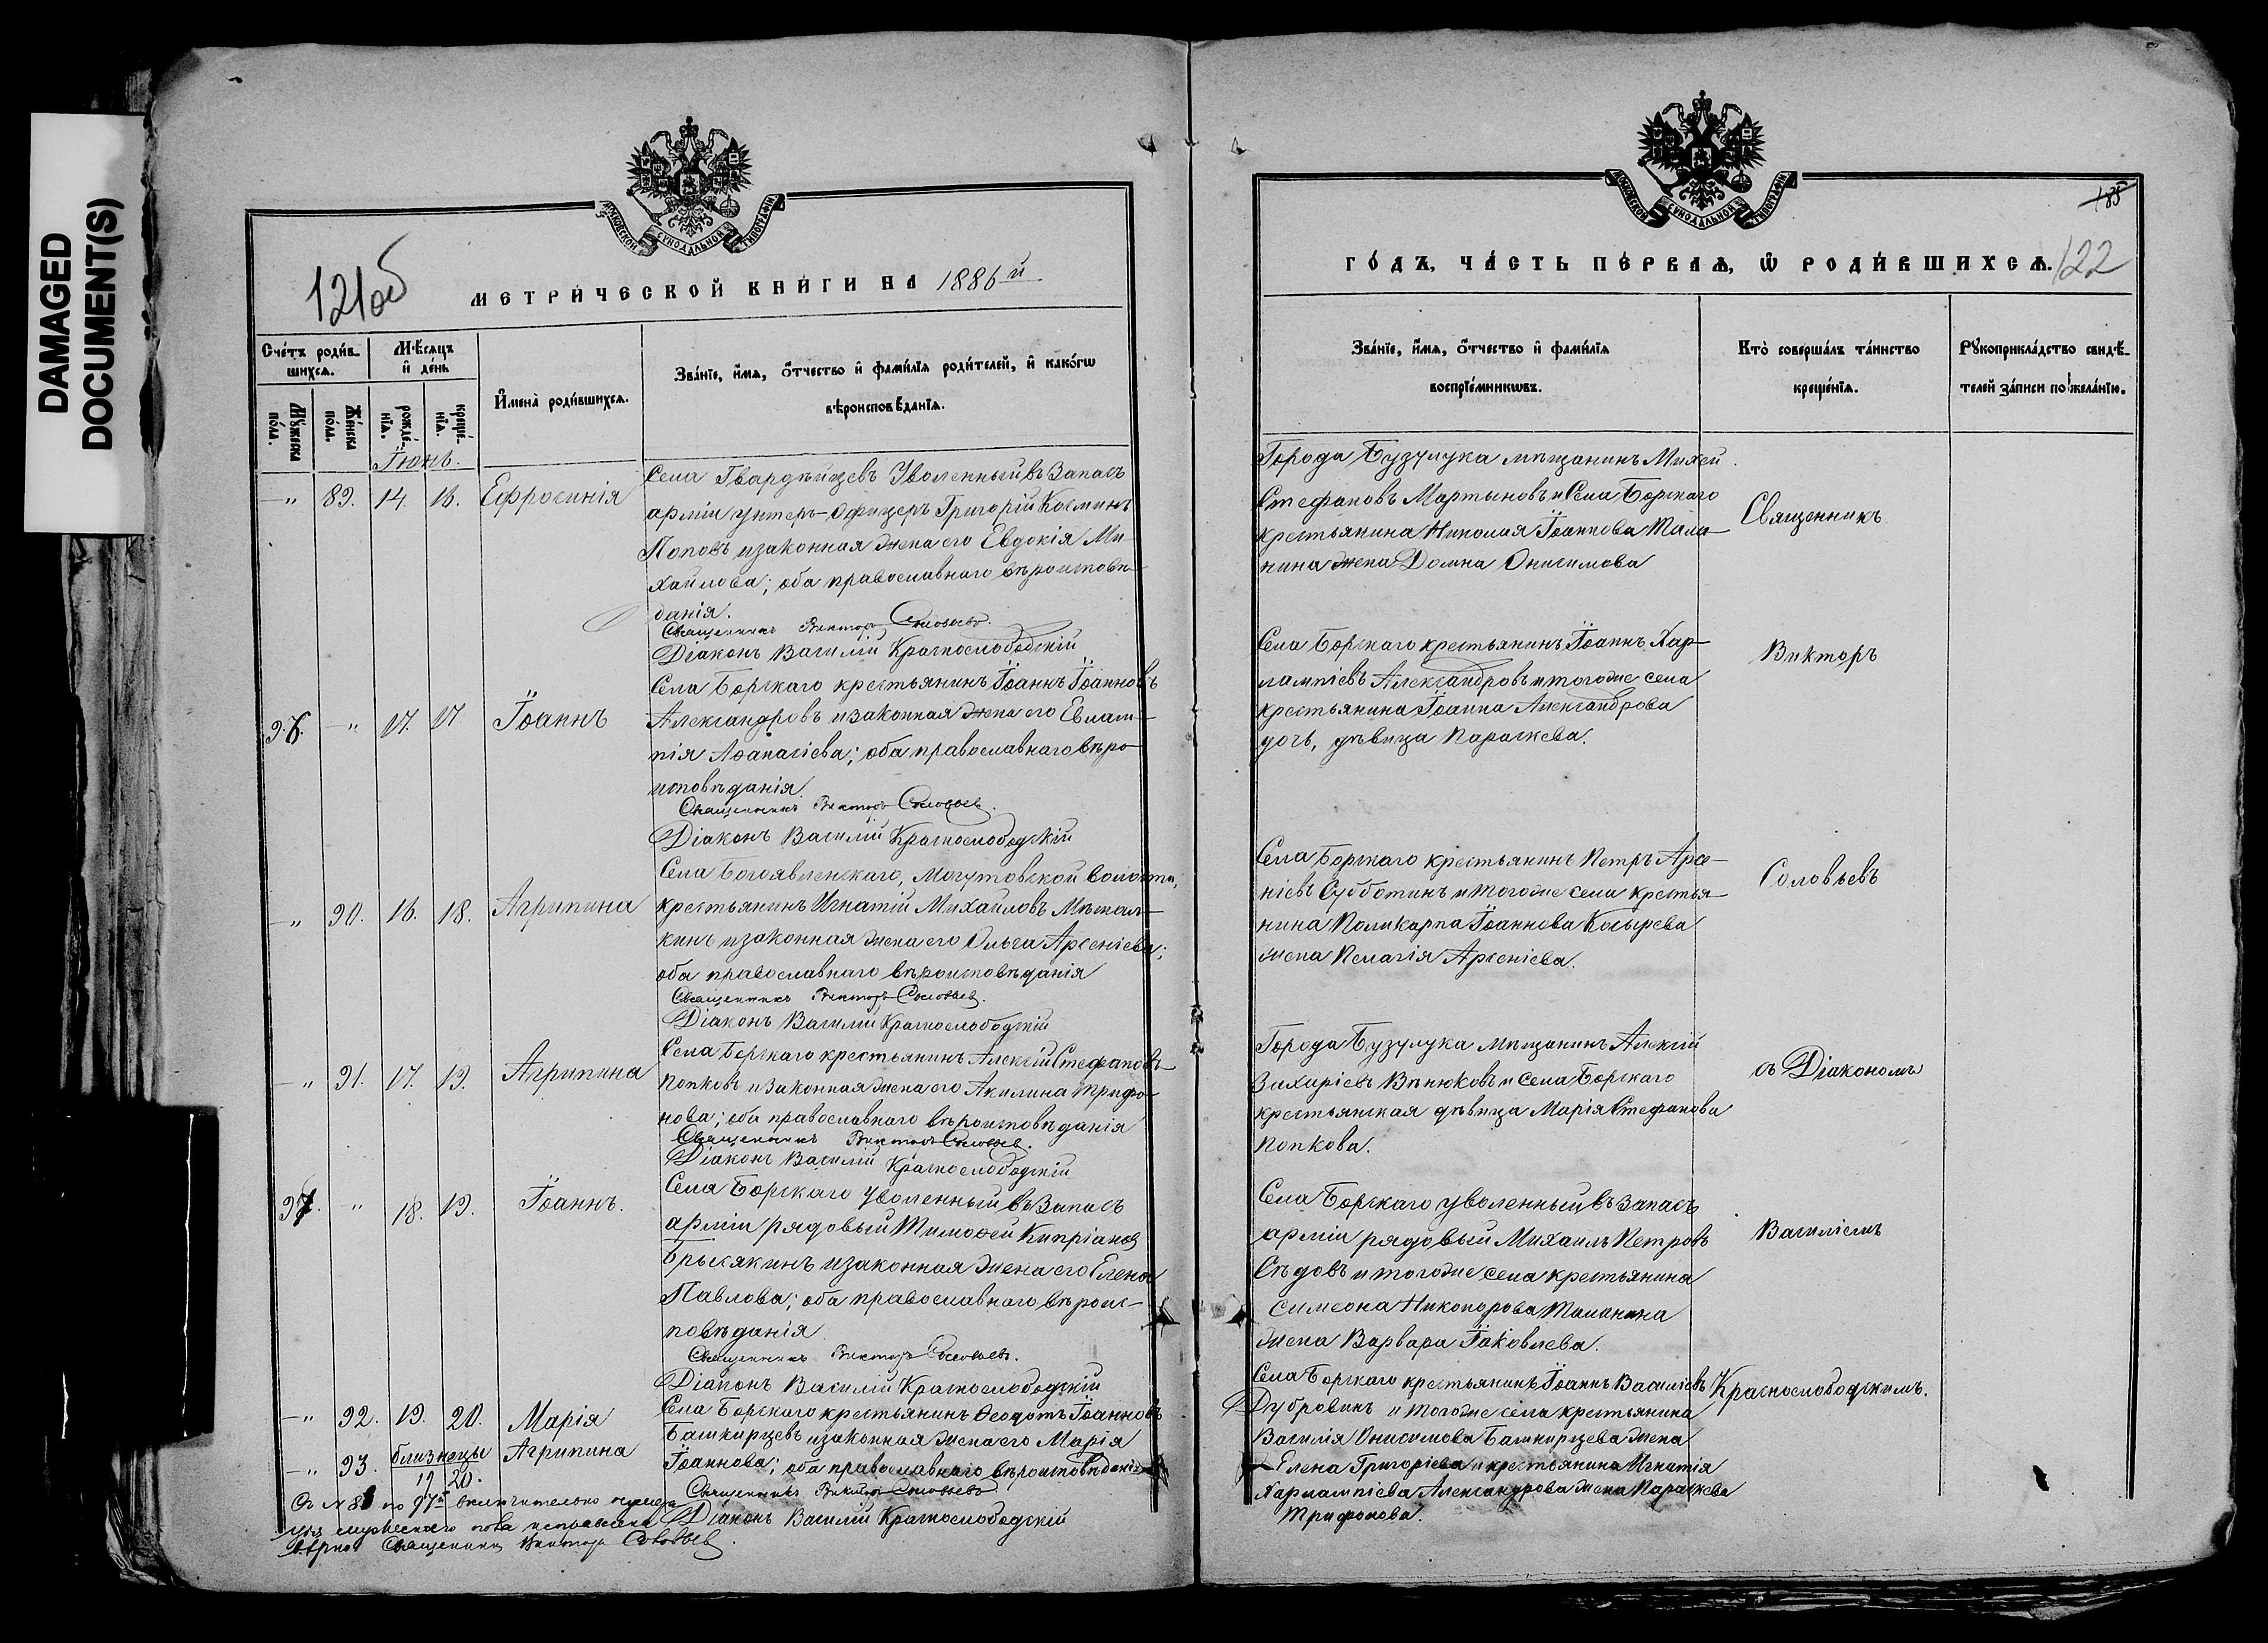 DAMAGED
DOCUMENT(S)
МОСКОВСКОЙ СѴНОДАЛЬНОЙ ТИПОГРАФІИ
121об
МЕТРИ́ЧЕСКОЙ КНИ́ГИ НА 1886й
Сче́тъ роди́в-
шихсѧ.
Мѣ́сѧцъ
и҆ де́нь
Мꙋ́жеска
по́ла.
Же́нска
по́ла.
рожде́-
нїѧ.
креще́-
нїѧ.
И҆мена̀ роди́вшихсѧ.
Зва́нїе, и҆́мѧ, ѻ҆́тчество и҆ фами́лїѧ роди́телей, и҆ како́гѡ
вѣроисповѣ́данїѧ.
Іюнь.
-„ 89. 14. 16. Ефросинія
Села Гвардѣйцевъ Уволенный въ Запасъ
арміи унтеръ-офицеръ Григорій Косминъ
Поповъ и законная жена его Евдокія Ми-
хайлова; оба православнаго вѣроисповѣ-
данія.
Священникъ Викторъ Соловьевъ.
Діаконъ Василій Краснослободскій
96. -„ 17. 17. Іоаннъ
Села Борскаго крестьянинъ Іоаннъ Іоанновъ
Александровъ и законная жена его Евлам-
пія Аѳанасіева; оба православнаго вѣро-
исповѣданія.
Священникъ Викторъ Соловьев.
Діаконъ Василій Краснослободскій
-„ 90. 16. 18. Агрипина
Села Богоявленскаго, Могутовской волости,
крестьянинъ Игнатій Михайловъ
кинъ и законная жена его Ольга Арсеніева;
оба православнаго вѣроисповѣданія
Священникъ Викторъ Соловьев.
Діаконъ Василій Краснослободскій
-„ 91. 17. 19. Агрипина
Села Борскаго крестьянинъ Алексій Стефановъ
Попковъ и законная жена его Акилина Трифо-
нова; оба православнаго вѣроисповѣданія
Священникъ Викторъ Соловьев.
Діаконъ Василій Краснослободскій
97. -„ 18. 19. Іоаннъ.
Села Борскаго уволенный въ Запасъ
арміи рядовый Тимоѳей Кипріановъ
Брысякинъ и законная жена его Елена
Павлова; оба православнаго вѣроис-
повѣданія
Священникъ Викторъ Соловьевъ.
Діаконъ Василій Краснослободскій
-„ 92. 19. 20. Марія
Села Борскаго крестьянинъ Ѳеодотъ Іоанновъ
Башкирцевъ и законная жена его Марія
-„ 93. близнецы Агрипина
19 20.
Іоаннова; оба православнаго вѣроисповѣданія
Священникъ Викторъ Соловьевъ
Діаконъ Василій Краснослободскій
Съ № 8 по 97й включительно
мужескаго пола исправлена
вѣрно Священникъ Викторъ Соловьев.
МОСКОВСКОЙ СѴНОДАЛЬНОЙ ТИПОГРАФІИ
185
ГО́ДЪ, ЧА́СТЬ ПЕ́РВАѦ, Ѡ҆ РОДИ́ВШИХСѦ. 122
Зва́нїе, и҆́мѧ, ѻ҆́тчество и҆ фами́лїѧ
воспрїе́мникѡвъ.
Кто̀ соверша́лъ та́инство
креще́нїѧ.
Рꙋкоприкла́дство свидѣ́-
телей за́писи по жела́нїю.
Города Бузулука мѣщанинъ Михей
Стефановъ Мартыновъ и Села Борскаго
крестьянина Николая Іоаннова Тала-
нина жена Домна Онисимова
Священникъ
Села Борскаго крестьянинъ Іоаннъ Хар-
лампіевъ Александровъ и тогоже села
крестьянина Іоанна Александрова
дочь, дѣвица Параскева.
Викторъ
Села Борскаго крестьянинъ Петръ Арсе-
ніевъ Субботинъ и тогоже села крестья-
нина Поликарпа Іоаннова Косырева
жена Пелагія Арсеніева.
Соловьевъ
Города Бузулука мѣщанинъ Алексій
Захаріевъ Вѣнюковъ и Села Борскаго
крестьянская дѣвица Марія Стефанова
Попкова.
съ Діакономъ
Села Борскаго уволенный въ запасъ
арміи рядовый Михаилъ Петровъ
Сѣдовъ и тогоже села крестьянина
Симеона Никонорова Таланина
жена Варвара Іаковлева.
Василіемъ
Села Борскаго крестьянинъ Іоаннъ Василіевъ
Дубровинъ и тогоже села крестьянина
Василія Онисимова Башкирцева жена
Елена Григоріева и крестьянина Игнатія
Харлампіева Александрова жена Параскева
Трифонова.
Краснослободскимъ.